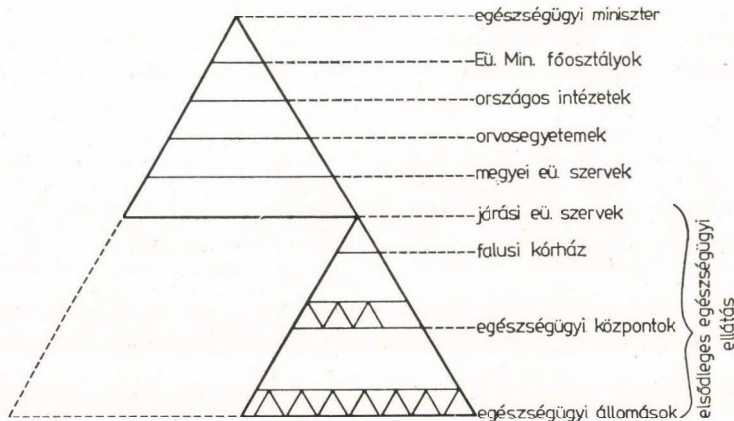 egészségügyi miniszter
Eü. Min. főosztályok
országos intézetek
orvosegyetemek
megyei eü. szervek
járási eü. szervek
falusi kórház
egészségügyi központok
egészségügyi állomások
elsődleges egészségügyi
ellátás